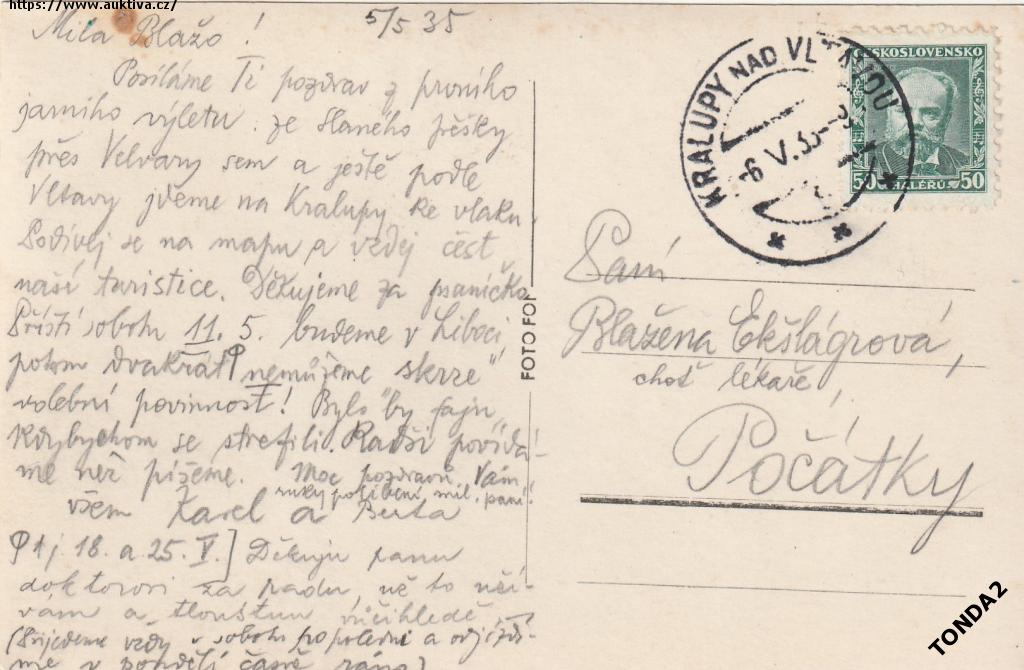 https://www.auktiva.cz/
5/5 35
Milá Blážo!
Posíláme Ti pozdrav z prvního
jarního výletu. Ze Slaného pěšky
přes Velvary sem a ještě podle
Vltavy jdeme na Kralupy ke vlaku.
Podívej se na mapu a vzdej čest
naší turistice. Děkujeme za psaníčko
Příští sobotu 11. 5. budeme v Liboci
potom dvakrát nemůžeme skrze
volební povinnost! Bylo by fajn,
kdybychom se strefili. Radši povídá-
me než píšeme. Moc pozdravů Vám
ruky políbení mil. paní!
všem Karel a Berta
tj. 18. a 25. V.] Děkuju panu
doktorovi za radu, už to uží-
vám a tloustnu vůčihledě
(Přijedeme vždy v sobotu popoledni a odjíždí-
me v pondělí časně ráno)
FOTO FOT
KRALUPY NAD VLTAVOU
-6 V.35-
ČESKOSLOVENSKO
50 HALÉŘŮ 50
Paní
Blažena Ekšlágrová,
choť lékaře,
Počátky
TONDA2